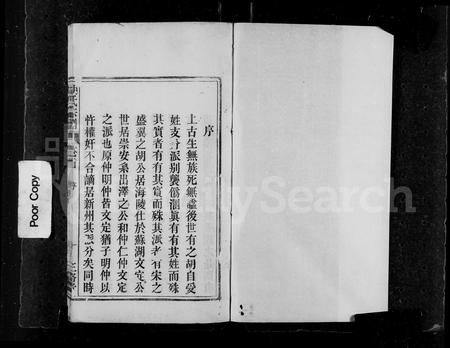 序
上古生無族死無諡後世有之胡自受
姓支分派别襲僞淵眞有有其姓而殊
其實者有有其實而殊其派者有宋之
盛翼之胡公居海陵仕於蘇湖文定公
世居崇安枭出澤之公和仲仁仲文定
之派也原仲明仲皆文定猶子明仲以
忤權奸不合謫居新州其派分矣同時
Poor Copy
FamilySearch